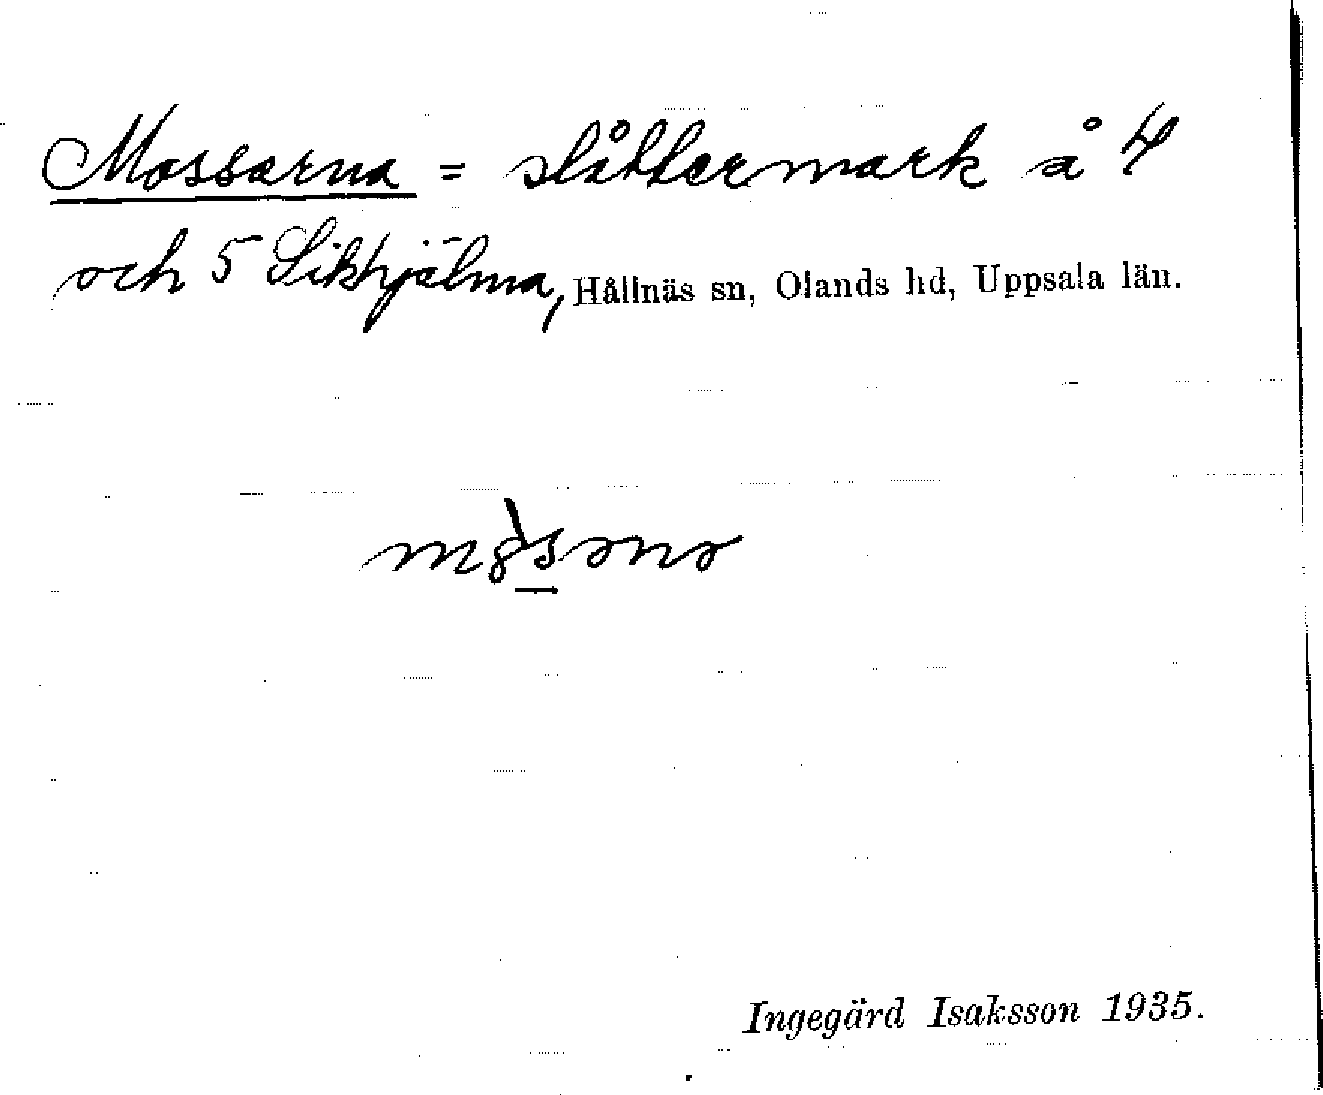 Mossarna = slåttermark å 4
och 5 Sikhjälma, Hållnäs sn, Olands hd, Uppsala län.
Ingegärd Isaksson 1935.